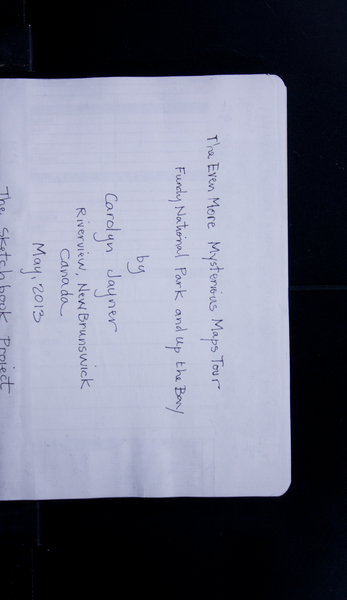 The Even More Mysterious Maps Tour
Fundy National Park and up the Bay
by
Carolyn Jayner
Riverview, New Brunswick
Canada
May, 2013
The Sketchbook Project